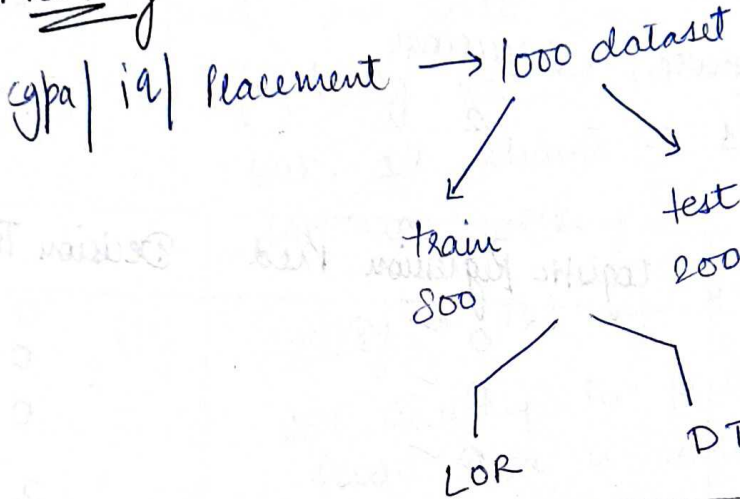 cgpa | iq | Placement → 1000 dataset
train
800
test
200
LOR
DT